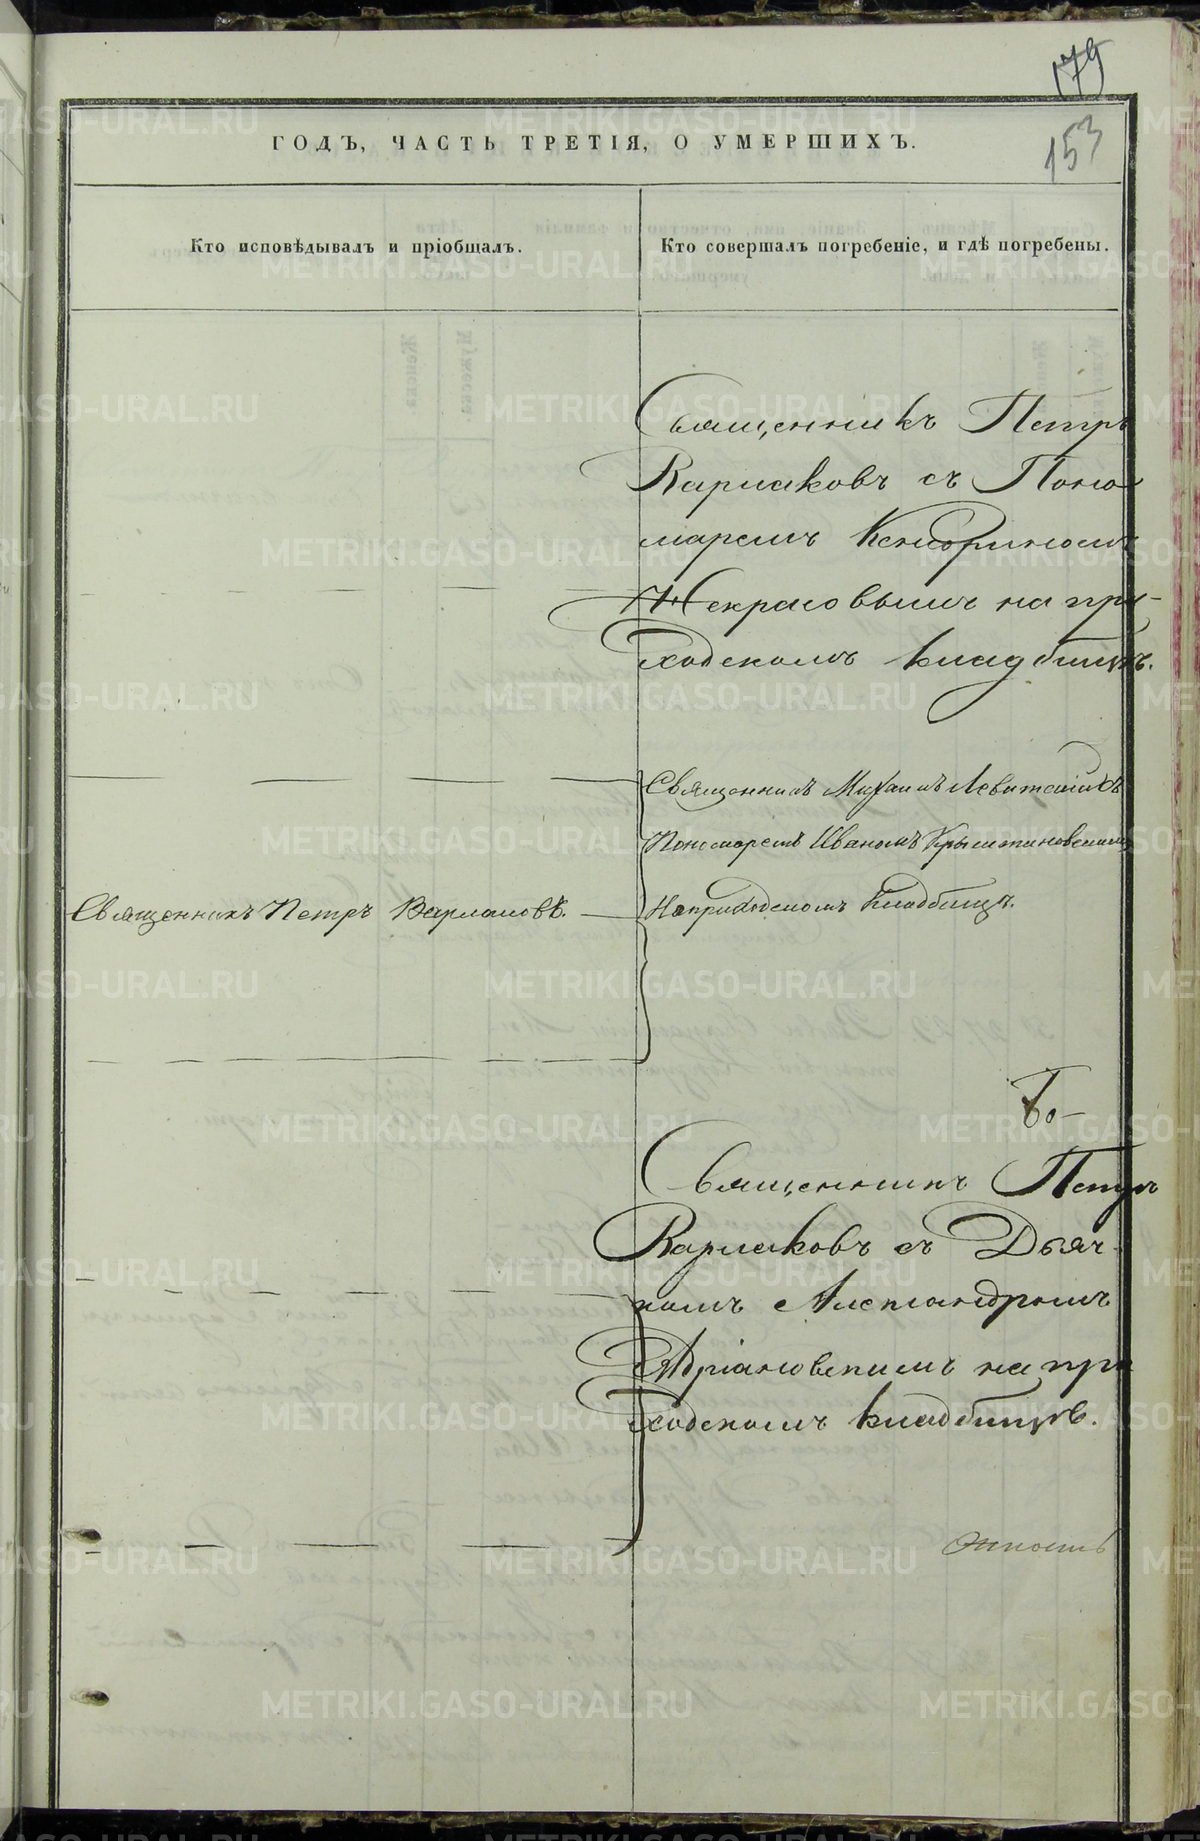 179
153
ГОДЪ, ЧАСТЬ ТРЕТІЯ, О УМЕРШИХЪ.
Кто исповѣдывалъ и пріобщалъ.
Кто совершалъ погребеніе, и гдѣ погребены.
Священникъ Петръ
Варлаковъ съ Поно
маремъ Кенсориномъ
Некрасовымъ на при-
ходскомъ кладбищѣ.
Священникъ Михаилъ Левитскій съ
Пономаремъ Иваномъ
На приходскомъ Кладбищѣ.
Священникъ Петръ Варлаковъ.
Священникъ Петръ
Варлаковъ съ Дьяч-
комъ Александромъ
Адріановскимъ на при
ходскомъ кладбищѣ.
METRIKI.GASO-URAL.RU